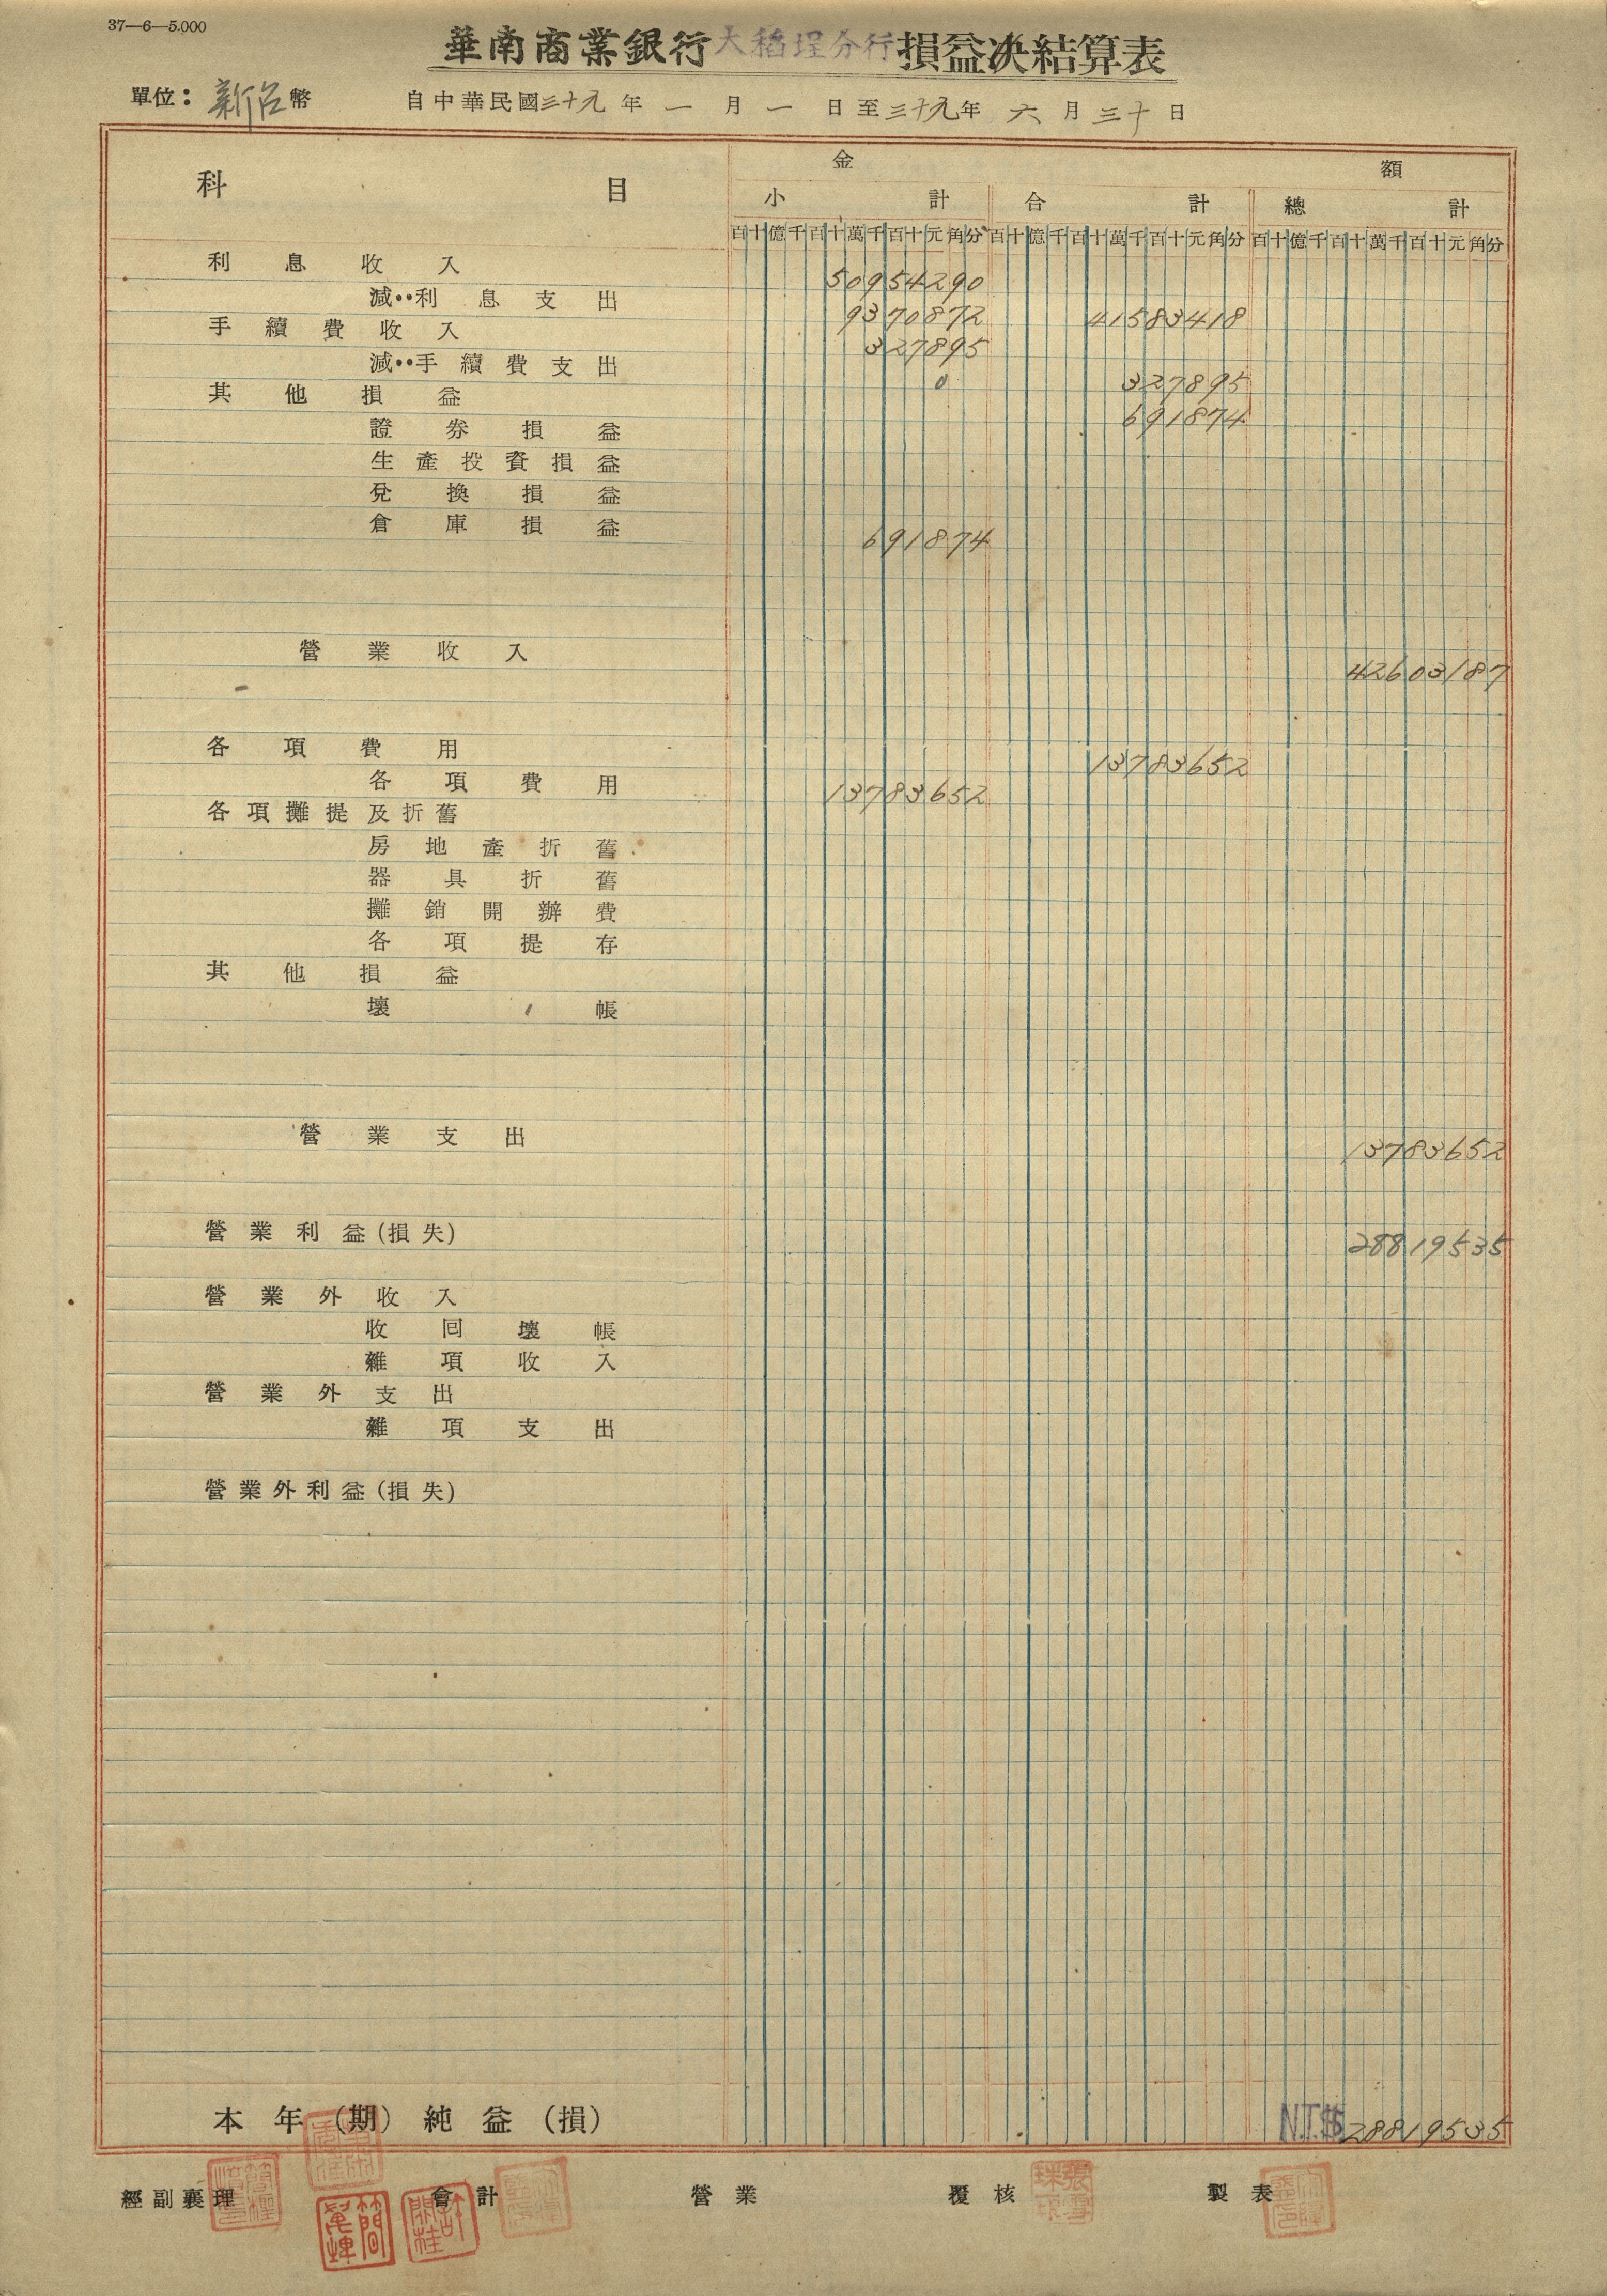 37—6—5.000
華南商業銀行大稻埕分行損益決結算表
單位：新台幣 自中華民國三十九年一月一日至三十九年六月三十日
科目 金額
小計 合計 總計
百十億千百十萬千百十元角分 百十億千百十萬千百十元角分 百十億千百十萬千百十元角分
利息收入 50954290
減：利息支出 9370872 41583418
手續費收入 327895
減：手續費支出 0 327895
其他損益 691874
證券損益
生產投資損益
兌換損益
倉庫損益 691874
營業收入 42603187
各項費用 13783652
各項費用 13783652
各項攤提及折舊
房地產折舊
器具折舊
攤銷開辦費
各項提存
其他損益
壞帳
營業支出 13783652
營業利益(損失) 28819535
營業外收入
收回壞帳
雜項收入
營業外支出
雜項支出
營業外利益(損失)
本年(期)純益(損) N.T.$ 28819535
經副襄理 會計 營業 覆核 製表